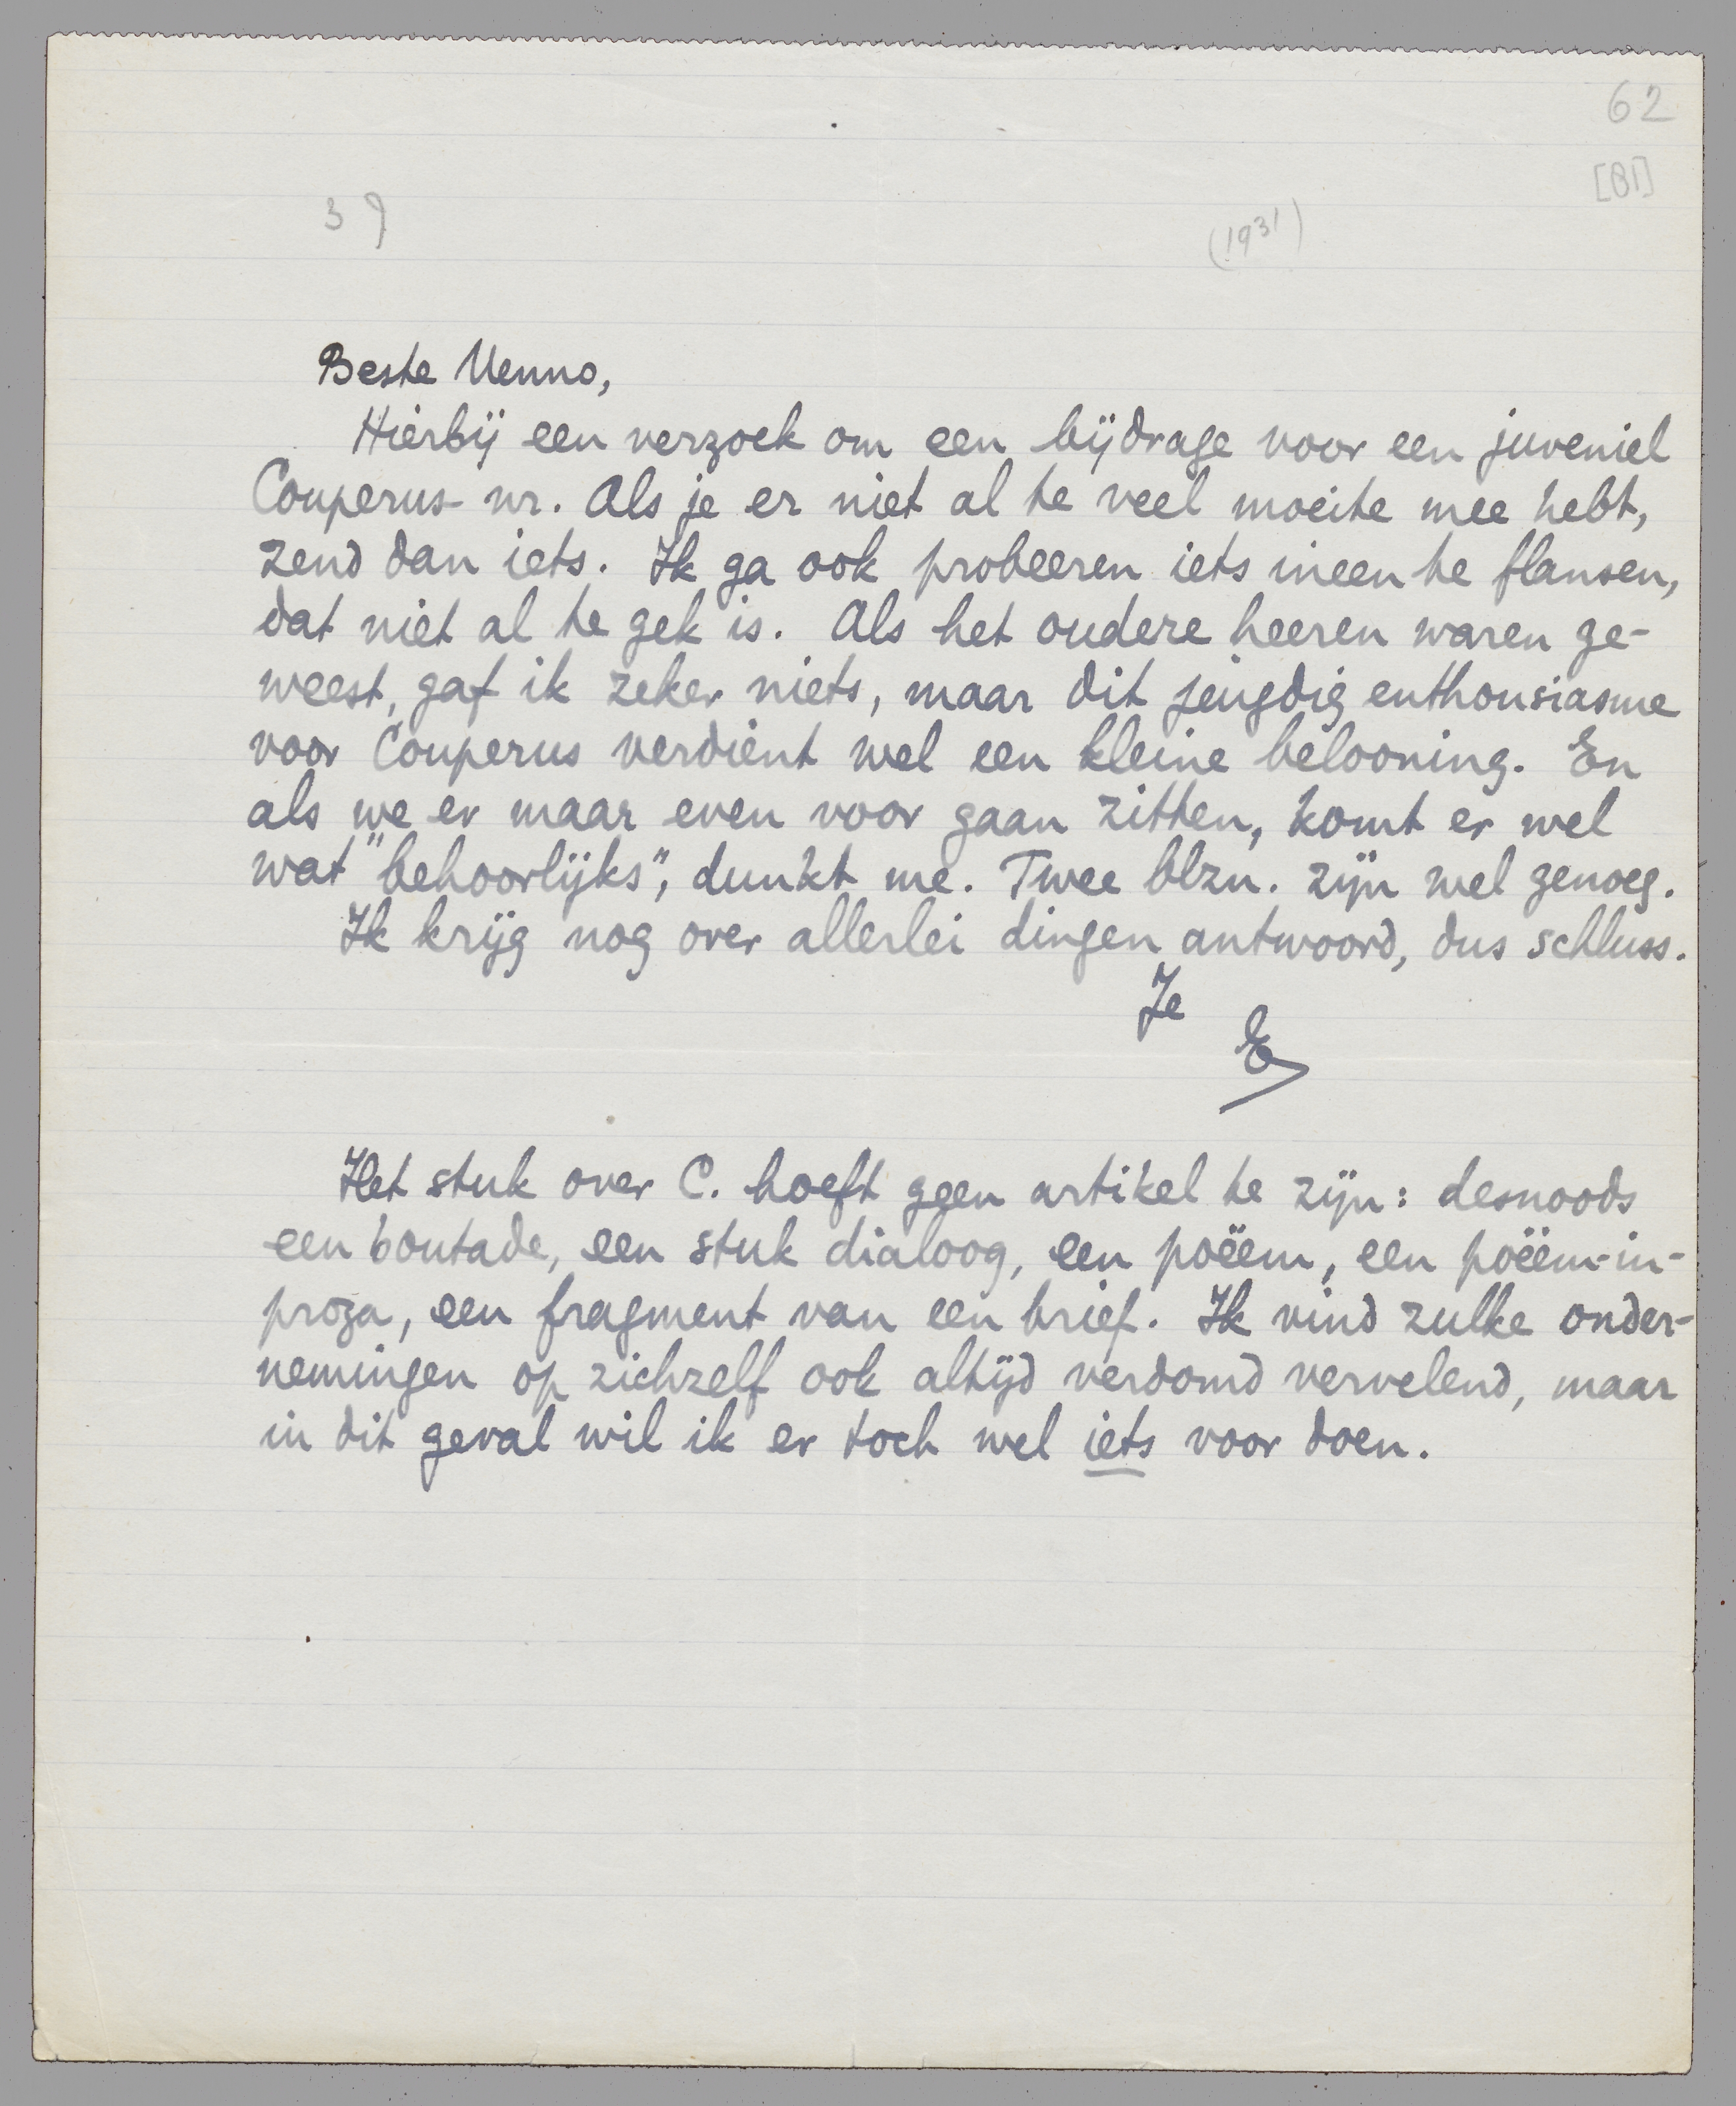 62
[B1]
39
(1931)
Beste Menno,
Hierbij een verzoek om een bijdrage voor een juveniel
Couperus-nr. Als je er niet al te veel moeite mee hebt,
zend dan iets. Ik ga ook probeeren iets ineen te flansen,
dat niet al te gek is. Als het oudere heeren waren ge-
weest, gaf ik zeker niets, maar dit jeugdig enthousiasme
voor Couperus verdient wel een kleine belooning. En
als we er maar even voor gaan zitten, komt er wel
wat "behoorlijks", dunkt me. Twee blzn. zijn wel genoeg.
Ik krijg nog over allerlei dingen antwoord, dus schluss.
Je
E
Het stuk over C. hoeft geen artikel te zijn: desnoods
een boutade, een stuk dialoog, een poëem, een poëem-in-
proza, een fragment van een brief. Ik vind zulke onder-
nemingen op zichzelf ook altijd verdomd vervelend, maar
in dit geval wil ik er toch wel iets voor doen.